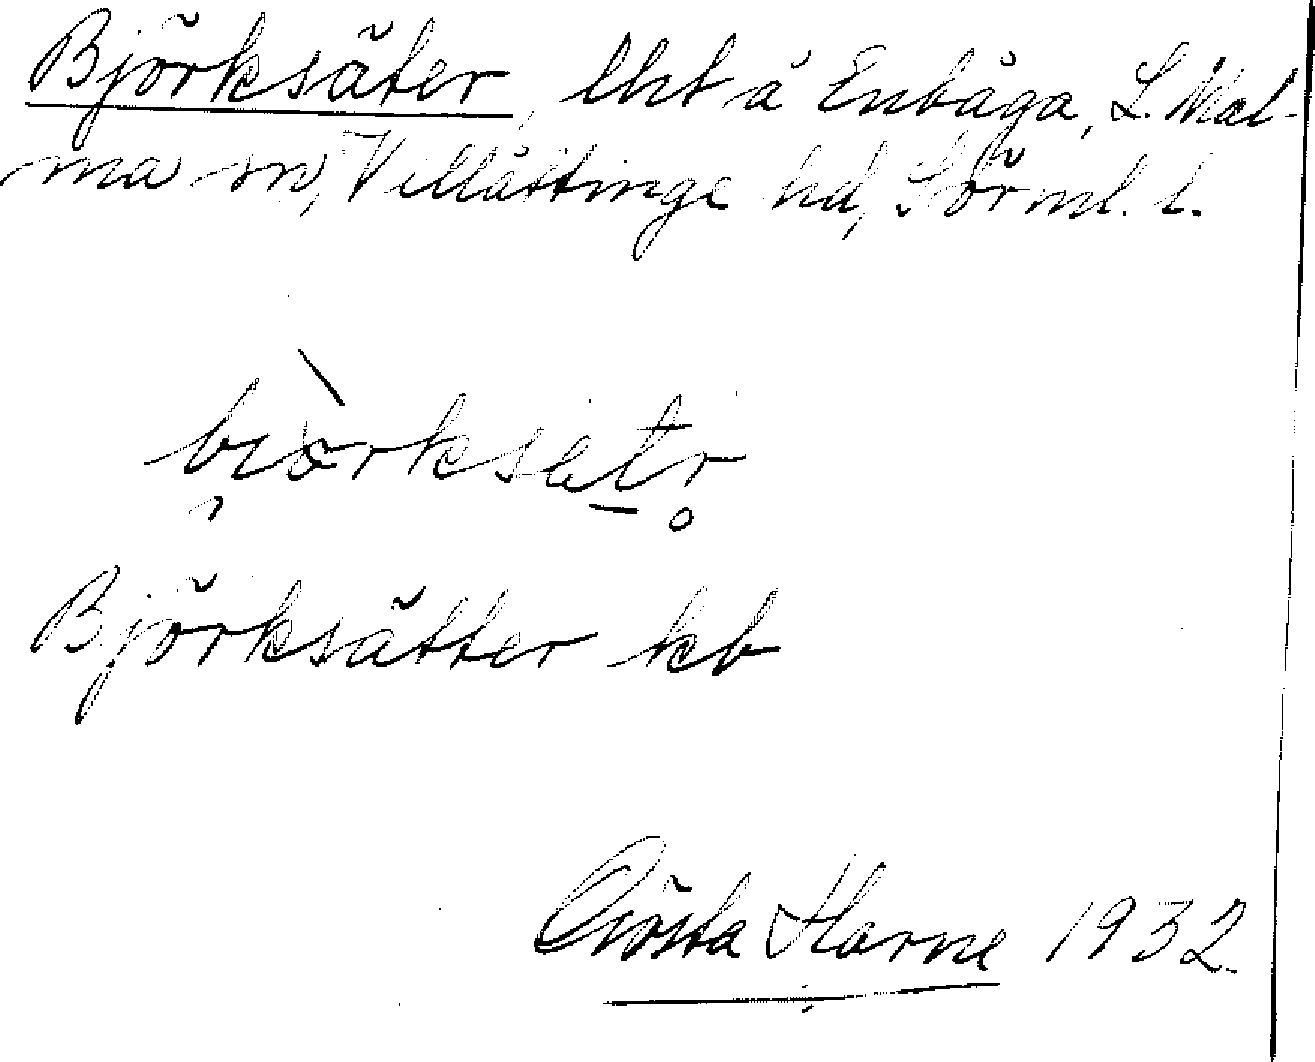 Björksäter, lht å Enbåga, L. Mal-
ma sn, Villåttinge hd, Sörml. l.
bi̯òrksetr̥
Björksätter kb
Gösta Harne 1932.